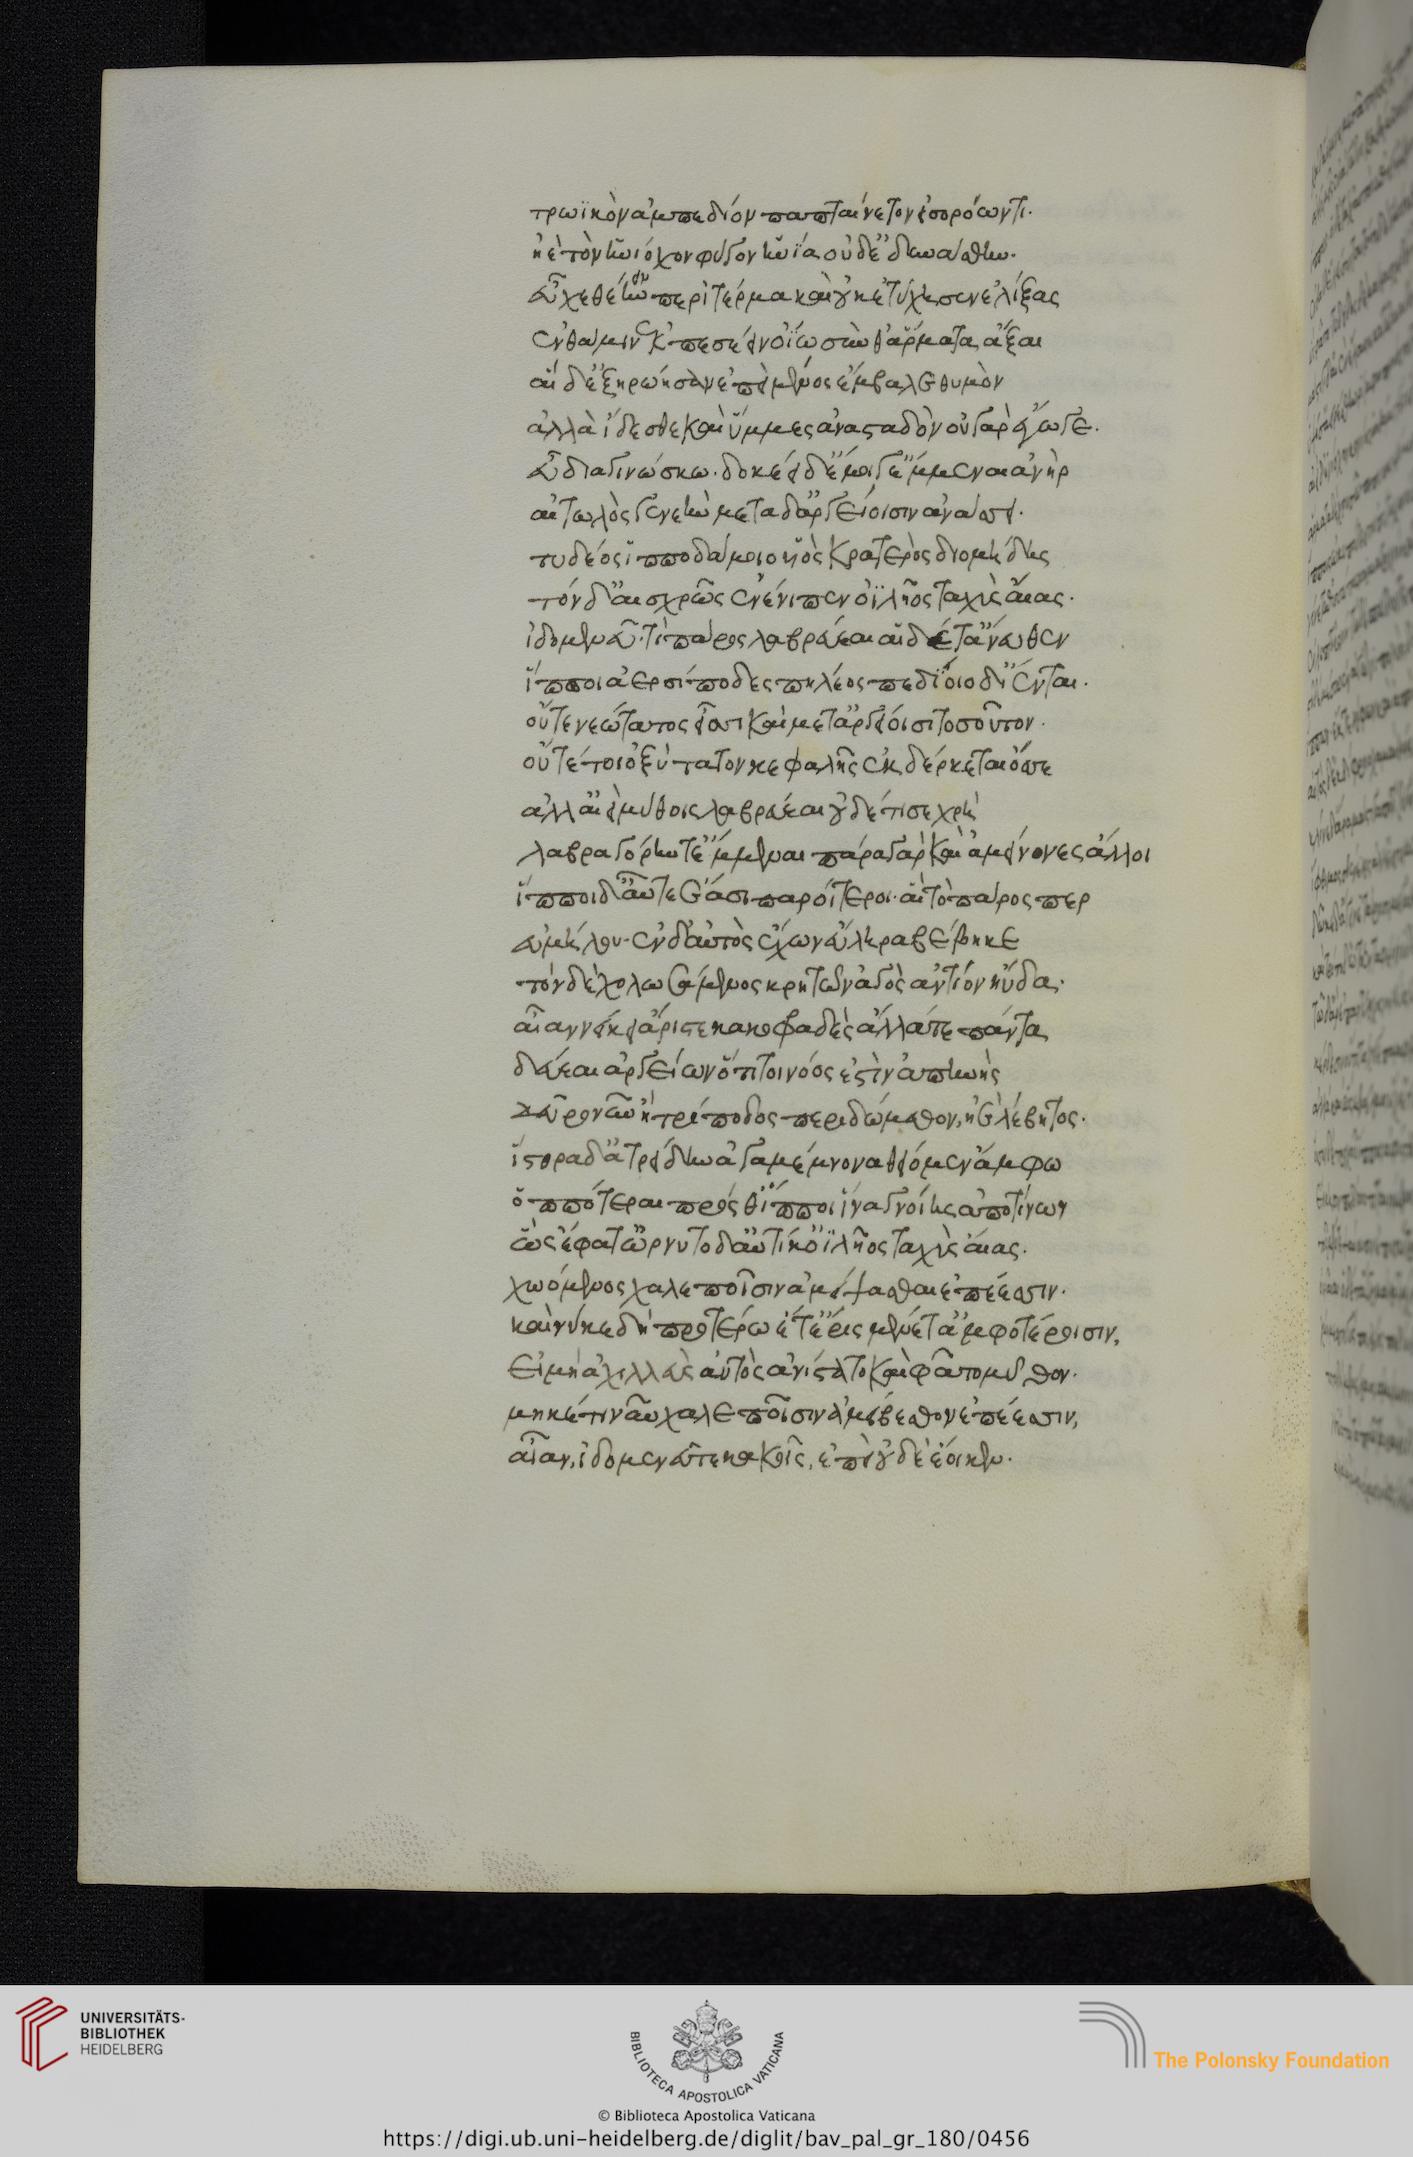 τρωϊκὸν ἀμπεδίον παπταίνετον εἰσορόωντι.
ἠὲ τὸν ἡνίοχον φύγον ἡνία οὐδ' ἐδυνάσθην.
εὖ σχεθέειν περὶ τέρμα καὶ οὐκ ἐτύχησεν ἑλίξας
ἔνθά μιν ἐκπεσέειν ὀΐω σύν θ' ἅρματα ἄξαι
αἱ δ' ἐξηρώησαν ἐπεὶ μένος ἔμβαλε θυμὸν
ἀλλὰ ἴδεσθε καὶ ὔμμες ἀνασταδὸν οὐ γὰρ ἔγωγε.
εὖ διαγινώσκω. δοκέει δέ μοι γ' ἔμμεναι ἀνὴρ
αἰτωλὸς γενεὴν μετὰ δ' ἀργείοισιν ἀνάσσει.
τυδέος ἱπποδάμοιο υἱὸς κρατερὸς διομήδης
τὸν δ' αἰσχρῶς ἐνένιπεν ὀϊλῆος ταχὺς αἴας.
ἰδομενεῦ. τί πάρος λαβρεύεαι αἱ δέ τ' ἄνευθεν
ἵπποι ἀερσίποδες πηλέος πεδίοιο δίενται.
οὔτε νεώτατος ἐσσὶ καὶ μετ' ἀργείοισι τοσοῦτον.
οὔτέ τοι ὀξύτατον κεφαλῆς ἐκδέρκεται ὄσσε
ἀλλ' αἰεὶ μύθοις λαβρεύεαι οὐδέ τί σε χρὴ
λαβραγόρην τ' ἔμμεναι πάρα γὰρ καὶ ἀμείνονες ἄλλοι
ἵπποι δ' αὖτε ἔασι παροίτεροι. αἳ τὸ πάρος περ
εὐμήλου. ἐν δ' αὐτὸς ἔχων εὔληρα βέβηκε
τὸν δὲ χολωσάμενος κρητῶν ἀγὸς ἀντίον ηὔδα.
αἶαν νείκει ἄριστε κακοφραδὲς ἄλλά τε πάντα
δεύεαι ἀργείων ὅτι τοι νόος ἐστὶν ἀπηνὴς
δεῦρό νυν ἢ τρίποδος περιδώμεθον, ἠὲ λέβητος.
ἵστορα δ' ἀτρείδην ἀγαμέμνονα θείομεν ἄμφω
ὁππότεραι πρόσθ' ἵπποι ἵνα γνοίης ἀποτίνων
ὣς ἔφατ' ὤρνυτο δ' αὐτίκ' ὀϊλῆος ταχὺς αἴας.
χωόμενος χαλεποῖσιν ἀμείψασθαι ἐπέεσσιν.
καὶ νύ κε δὴ προτέρω ἔτ' ἔρις γένετ' ἀμφοτέροισιν,
εἰ μὴ ἀχιλλεὺς αὐτὸς ἀνίστατο καὶ φάτο μῦθον.
μηκέτι νῦν χαλεποῖσιν ἀμείβεσθον ἐπέεσσιν,
αἶαν, ἰδομενεῦ τε κακοῖς, ἐπεὶ οὐδὲ ἔοικεν.
UNIVERSITÄTS-
BIBLIOTHEK
HEIDELBERG
BIBLIOTECA APOSTOLICA VATICANA
The Polonsky Foundation
© Biblioteca Apostolica Vaticana
https://digi.ub.uni-heidelberg.de/diglit/bav_pal_gr_180/0456